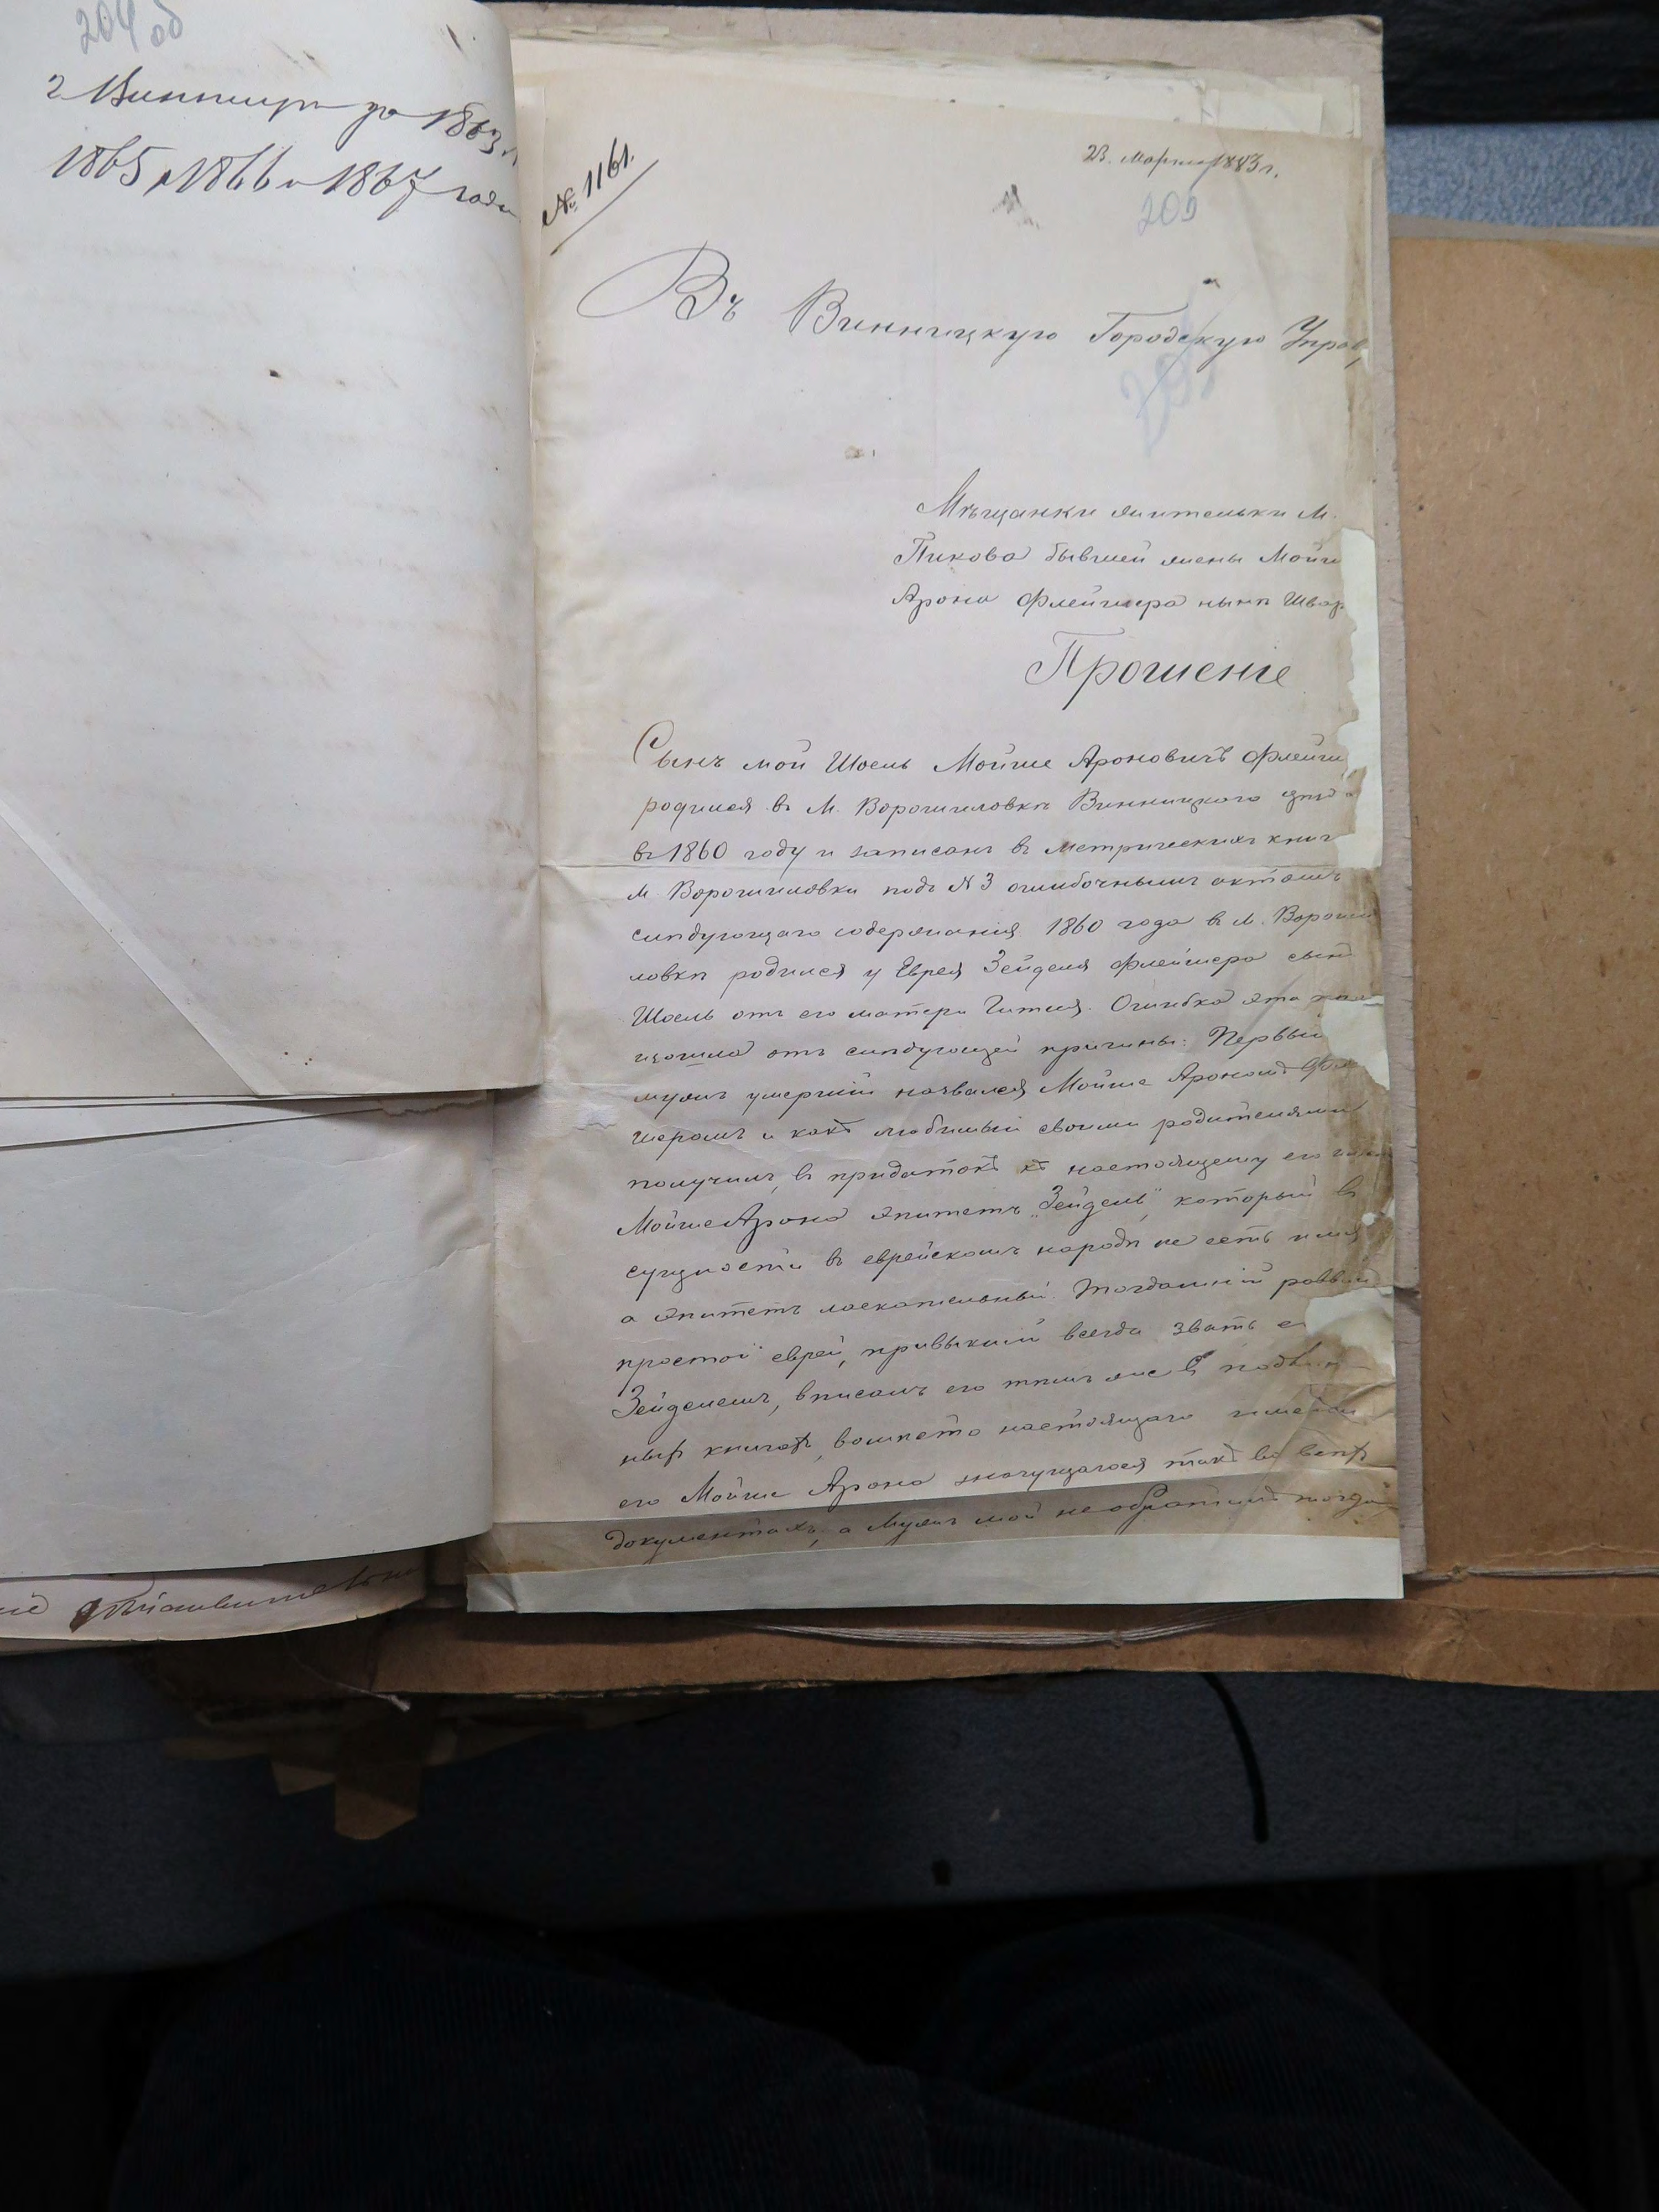 204 об
г Винницы за 1863 и
1865, 1866 и 1867 годы
№ 1161.
23. Марта 1883 г.
205
Въ Винницкую Городскую Управ,
Мѣщанки жительки М.
Пикова бывшей жены Мойш
Арона Флейшера нынѣ Швар
Прошеніе
Сынъ мой Шоель Мойше Ароновичъ Флейш
родился въ М. Ворошиловкѣ Винницкого уѣзда
въ 1860 году и записанъ въ метрическихъ книг
м. Ворошиловки подъ N 3 ошибочнымъ актомъ
слѣдующаго содержанія 1860 года въ м. Вороши
ловкѣ родился у Еврея Зейделя Флейшера сынъ
Шоель отъ его матери Гитля. Ошибка эта
изошла отъ слѣдующей причины: Первый
мужъ умершій назвался Мойше Арономъ Флей
шеромъ и какъ любимый своими родителями
получилъ, въ придатокъ къ настоящему его
Мойше Арона эпитетъ "Зейдель", который въ
сущности въ еврейскомъ народѣ не есть имя
а эпитетъ ласкательный. Тогдашній равви
простой еврей, привыкшій всегда звать е
Зейделемъ, вписалъ его тѣмъ же въ
ныхъ книгахъ, вомѣсто настоящаго имени
его Мойше Арона значущагося такъ во всѣхъ
документахъ, а Мужъ мой не обратилъ тогда
дѣйствительно